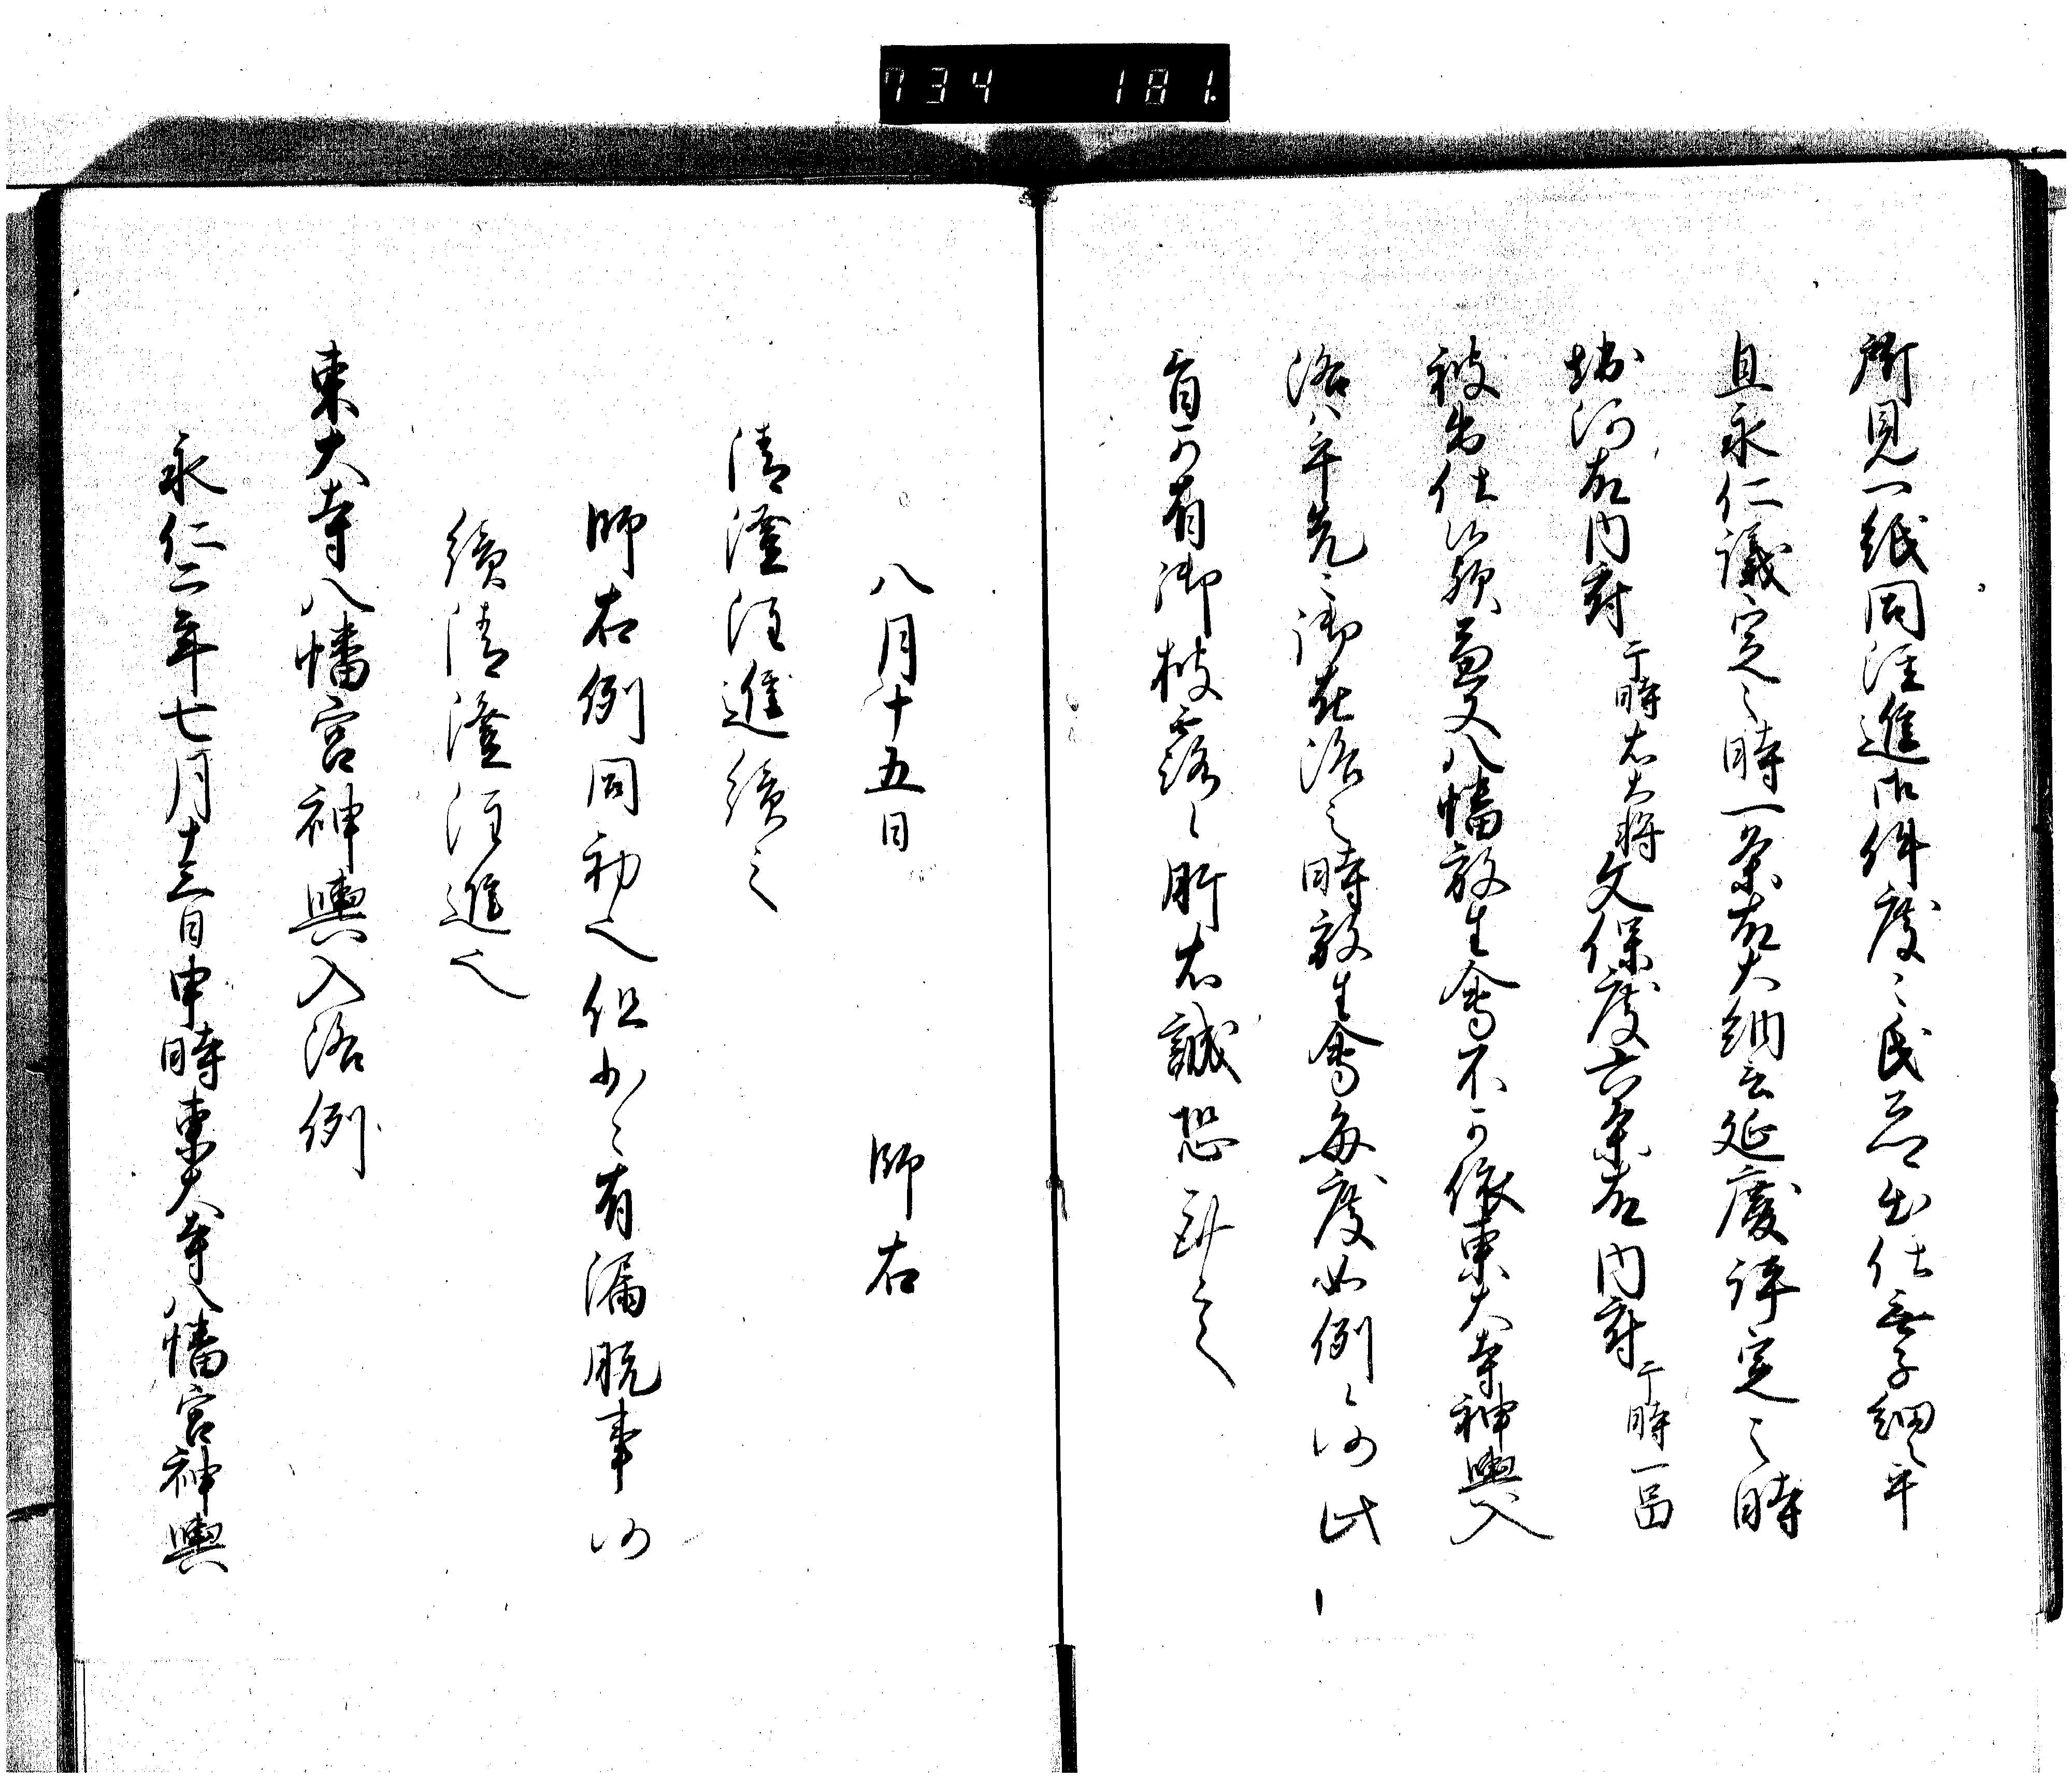 734 181
所見一紙同注進候件度々氏公卿出仕無子細候乎
且永仁議定之時一条左大納言延慶評定之時
堀河左内府于時右大将文保度六条右内府于時一品
被出仕候歟兼又八幡放生會不可依東大寺神輿入
洛候乎先々御在洛之時放生會毎度如例候以此
旨可有御披露候師右誠恐謹言
八月十五日 師右
清澄注進続之
師右例同初之但少々有漏脱事以
続清澄注進之
東大寺八幡宮神輿入洛例
永仁二年七月十三日申時東大寺八幡宮神輿